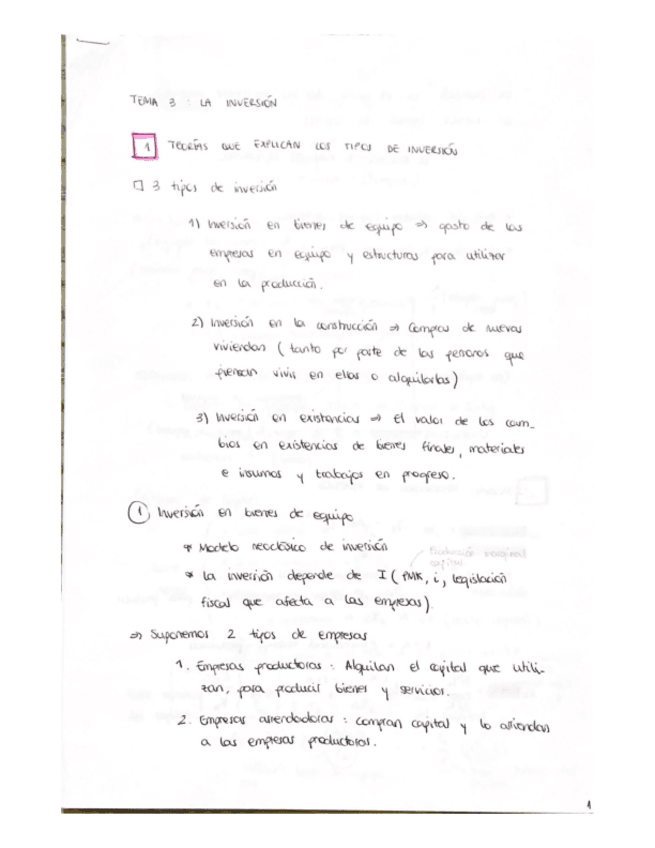 TEMA 3 : LA INVERSIÓN
1 TEORÍAS QUE EXPLICAN LOS TIPOS DE INVERSIÓN
□ 3 tipos de inversión
1) Inversión en bienes de equipo ⇒ gasto de las
empresas en equipo y estructuras para utilizar
en la producción.
2) Inversión en la construcción ⇒ Compras de nuevas
viviendas ( tanto por parte de las personas que
piensan vivir en ellas o alquilarlas)
3) Inversión en existencias ⇒ El valor de los cam_
bios en existencias de bienes finales, materiales
e insumos y trabajos en progreso.
① Inversión en bienes de equipo
* Modelo neoclásico de inversión
Productividad marginal
capital
* La inversión depende de I ( PMK, i, legislación
fiscal que afecta a las empresas).
⇒ Suponemos 2 tipos de empresas
1. Empresas productoras : Alquilan el capital que utili-
zan, para producir bienes y servicios.
2. Empresas arrendadoras : compran capital y lo arriendan
a las empresas productoras.
1